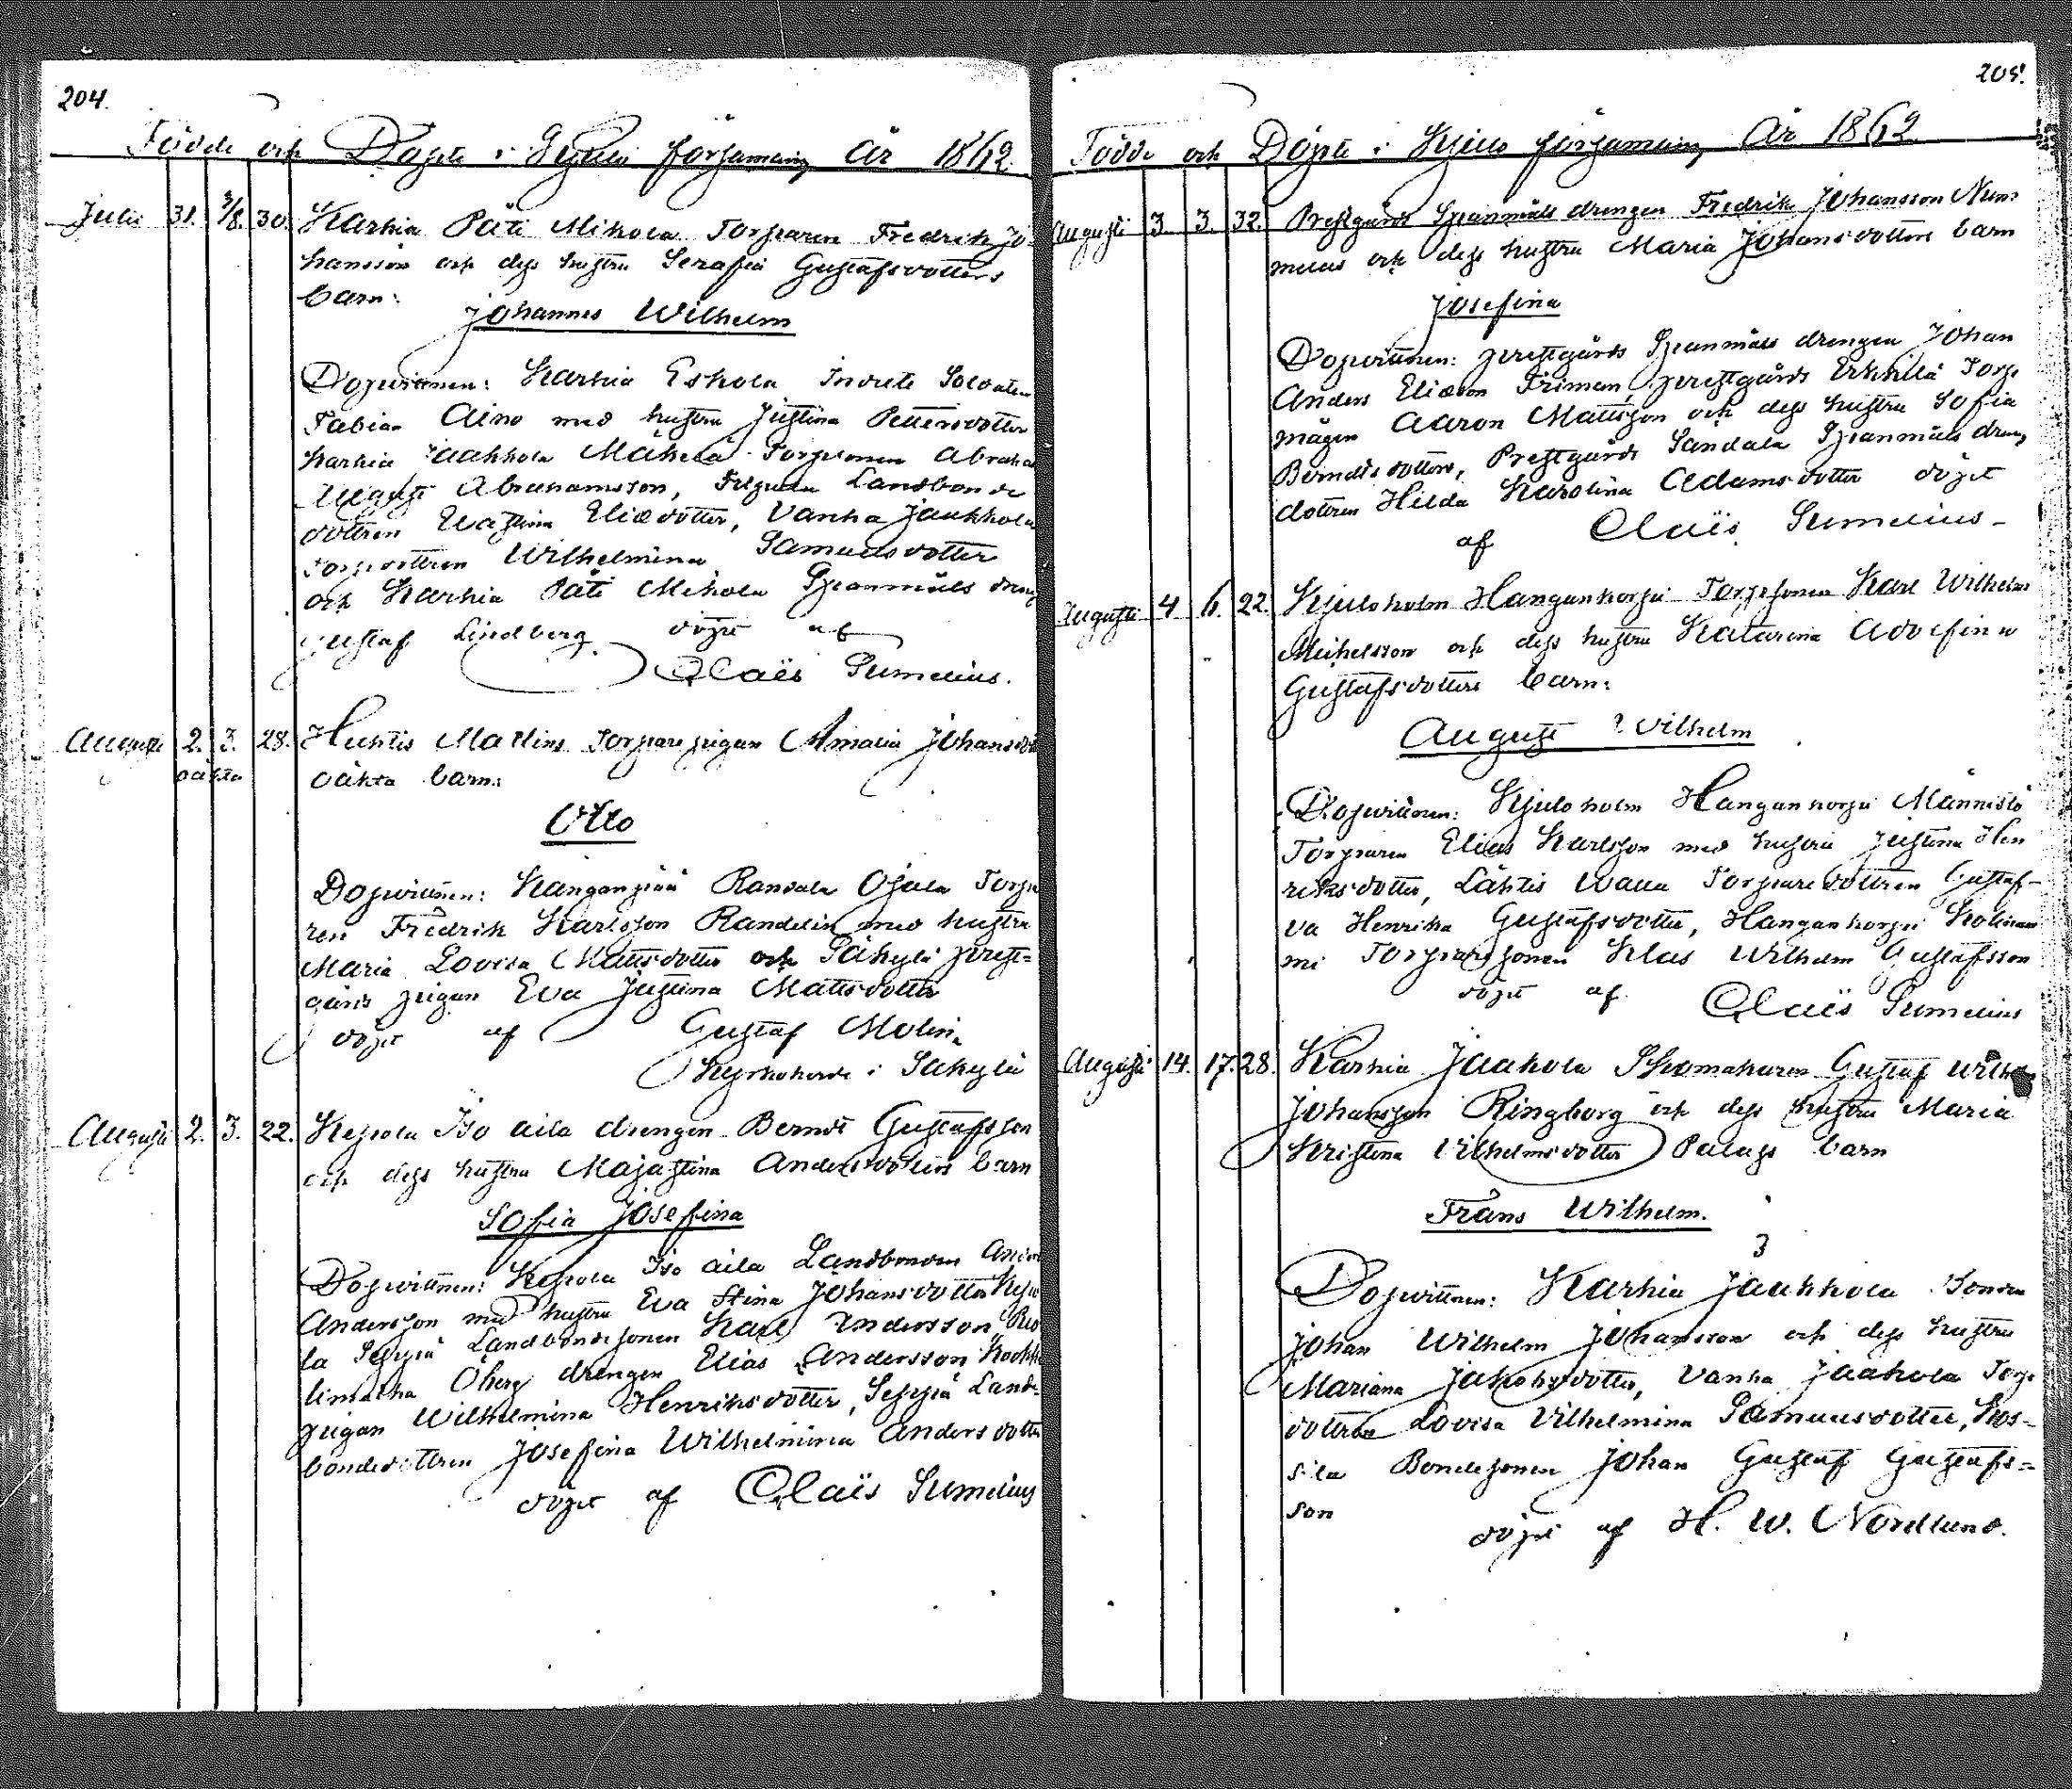 204.
Födde och Döpte i Kjulo församling År 1862.
Julii 31. 3/8. 30. Karhia Päti Mikola Torparen Fredrik Jo-
hansson och dess hustru Serafia Gustafsdotters
barn:
Johannes Wilhelm
Dopvittnen: Karhia Eskola Inrote Soldaten
Fabian Aino med hustru Justina Pettersdotter
Karhia Jaakkola Mäkelä Torpsonen Abraham
August Abrahamsson, Landbonde
dottren Evastina Eliædotter, Vanha Jaakkola
Torpdottren Wilhelmina Samuelsdotter
och Karhia Päti Mikola Spanmåls dreng
Gustaf Lindberg döpt af
Claës Sumelius.
Augusti 2. 3. 28. Huhtis Matlins Torpare pigan Amalia Johansdot
oäkta oäkta barn:
Otto
Dopvittnen: Kanganpää Randala Ojala Torpa
ren Fredrik Karlsson Randelin med hustru
Maria Lovisa Mattsdotter och Säkylä prest-
gårds pigan Eva Justina Mattsdotter
döpt af Gustaf Molin
Kyrkoherde i Säkylä
Augusti 2. 3. 22. Kepola Iso aila drengen Berndt Gustafsson
och dess hustru Majastina Andersdotters barn
Sofia Josefina
Dopvittnen: Kepola Iso aila Landbonden Anders
Andersson med hustru Eva Stina Johansdotter Kepo
la Seppä Landbondesonen Karl Andersson
Öberg drengen Elias Andersson
pigan Wilhelmina Henriksdotter, Seppä Land-
bondedottren Josefina Wilhelmina Andersdotter
döpt af Claës Sumelius
205.
Födde och Döpte i Kjulo församling År 1862
Augusti 3. 3. 32. Prestgårds Spanmåls drengen Fredrik Johansson Num
melin och dess hustru Maria Johansdotters barn
Josefina
Dopvittnen: prestgårds Spanmåls drengen Johan
Anders Eliæson Friman, prestgårds Erkkilä Torp
mågen Aaron Mattsson och dess hustru Sofia
Berndtsdotter, Prestgårds Sandala Spanmåls dreng
dottren Hilda Karolina Adamsdotter döpt
af Claës Sumelius
Augusti 4 6. 22. Kjuloholm Hangankorpi Torpsonen Karl Wilhelm
Mickelsson och dess hustru Katarina Adolfina
Gustafsdotters barn:
August Wilhelm
Dopvittnen: Kjuloholm Hangankorpi Männistö
Torparen Elias Karlsson med hustru Justina Hen
riksdotter, Lähtis Torparedottren Gustaf-
va Henrika Gustafsdotter, Hangankorpi
Torparesonen Klas Wilhelm Gustafsson
döpt af Claës Sumelius
Augusti 14. 17. 28. Karhia Jaakola Skomakaren Gustaf Wilhelm
Johansson Ringborg och dess hustru Maria
Kristina Vilhelmsdotter barn
Frans Wilhelm.
3
Dopvittnen: Karhia Jaakkola Bonden
Johan Wilhelm Johansson och dess hustru
Mariana Jakobsdotter, Vanha Jaakola Torp
dottren Lovisa Vilhelmina Samuelsdotter, Kos-
sila Bondesonen Johan Gustaf Gustafs=
son
döpt af H. W. Nordlund.